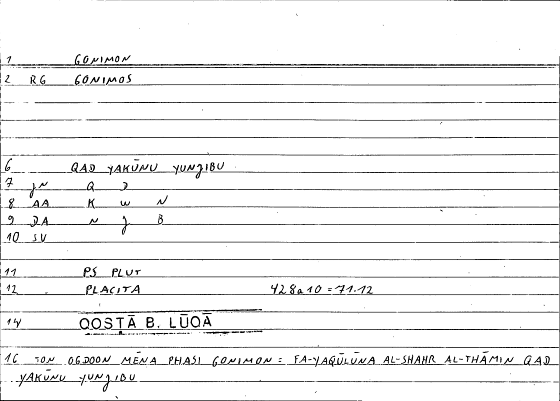 1 GONIMON
2 RG GONIMOS
6 QAD YAKŪNU YUNJIBU
7 JN Q D
8 AA K W N
9 DA N J B
10 SV
11 PS PLUT
12 PLACITA 428a10 = 71.12
14 QOSṬĀ B. LŪQĀ
16 TON OGDOON MĒNA PHASI GONIMON = FA-YAQŪLŪNA AL-SHAHR AL-THĀMIN QAD
YAKŪNU YUNJIBU